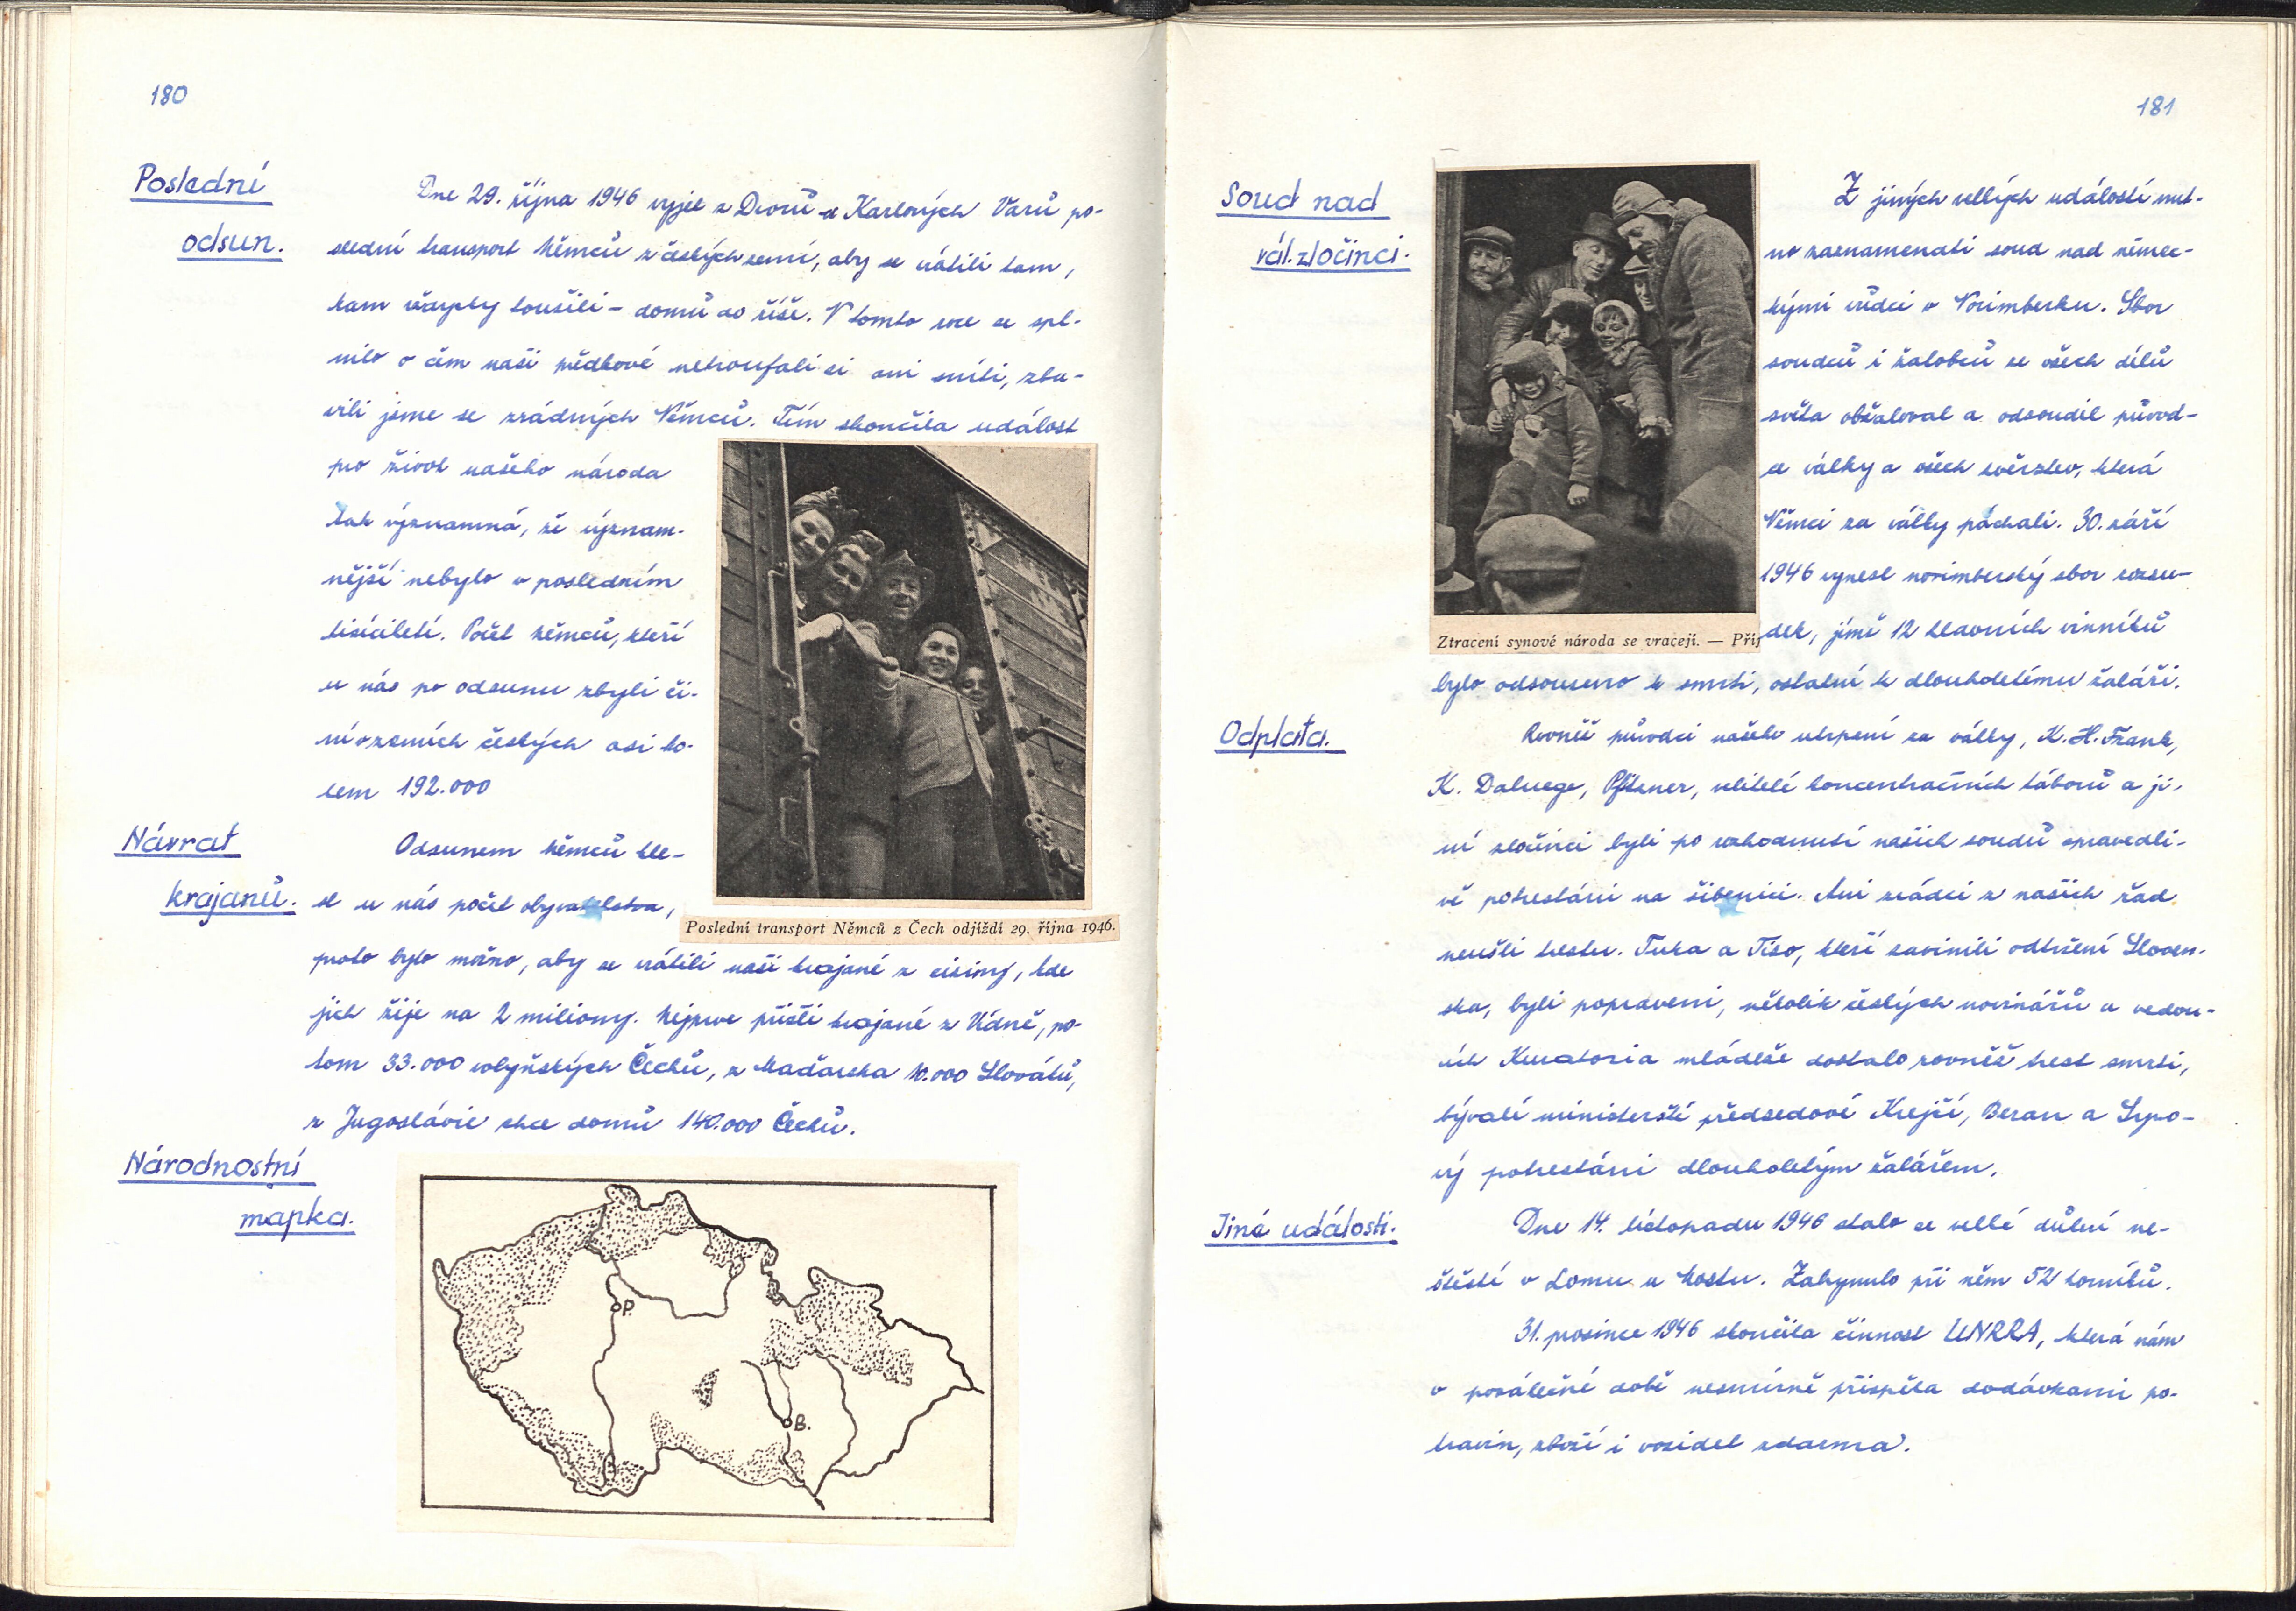 180
Poslední
odsun.
Dne 29. října 1946 vyjel z Dvorů u Karlových Varů po-
slední transport Němců z českých zemí, aby se vrátili tam,
kam vždycky toužili – domů do říše. V tomto roce se spl-
nilo o čem naši předkové netroufali si ani sníti, zba-
vili jsme se zrádných Němců. Tím skončila událost
pro život našeho národa
tak významná, že význam-
nější nebylo v posledním
tisíciletí. Počet Němců, kteří
u nás po odsunu zbyli či-
ní v zemích českých asi ko-
lem 192.000
Poslední transport Němců z Čech odjíždí 29. října 1946.
Návrat
krajanů.
Odsunem Němců kle-
sl u nás počet obyvatelstva,
proto bylo možno, aby se vrátili naši krajané z ciziny, kde
jich žije na 2 miliony. Nejprve přišli krajané z Vídně, po-
tom 33.000 volyňských Čechů, z Maďarska 10.000 Slováků,
z Jugoslávie chce domů 140.000 Čechů.
Národnostní
mapka.
P.
B.
181
Soud nad
vál. zločinci.
Z jiných velkých událostí nut-
no zaznamenati soud nad němec-
kými vůdci v Norimberku. Sbor
soudců i žalobců ze všech dílů
světa obžaloval a odsoudil původ-
ce války a všech zvěrstev, která
Němci za války páchali. 30. září
1946 vynesl norimberský sbor rozsu-
dek, jímž 12 hlavních vinníků
bylo odsouzeno k smrti, ostatní k dlouholetému žaláři.
Ztracení synové národa se vracejí. — Příj
Odplata.
Rovněž původci našeho utrpení za války, K. H. Frank,
K. Daluege, Pfitzner, velitelé koncentračních táborů a ji-
ní zločinci byli po rozhodnutí našich soudů spravedli-
vě potrestáni na šibenici. Ani zrádci z našich řad
neušli trestu. Tuka a Tiso, kteří zavinili odtržení Sloven-
ska, byli popraveni, několik českých novinářů a vedou-
cích Kuratoria mládeže dostalo rovněž trest smrti,
bývalí ministerští předsedové Krejčí, Beran a Syro-
vý potrestáni dlouholetým žalářem.
Jiné události.
Dne 14. listopadu 1946 stalo se velké důlní ne-
štěstí v Lomu u Mostu. Zahynulo při něm 52 horníků.
31. prosince 1946 skončila činnost UNRRA, která nám
v poválečné době nesmírně přispěla dodávkami po-
travin, zboží i vozidel zdarma.